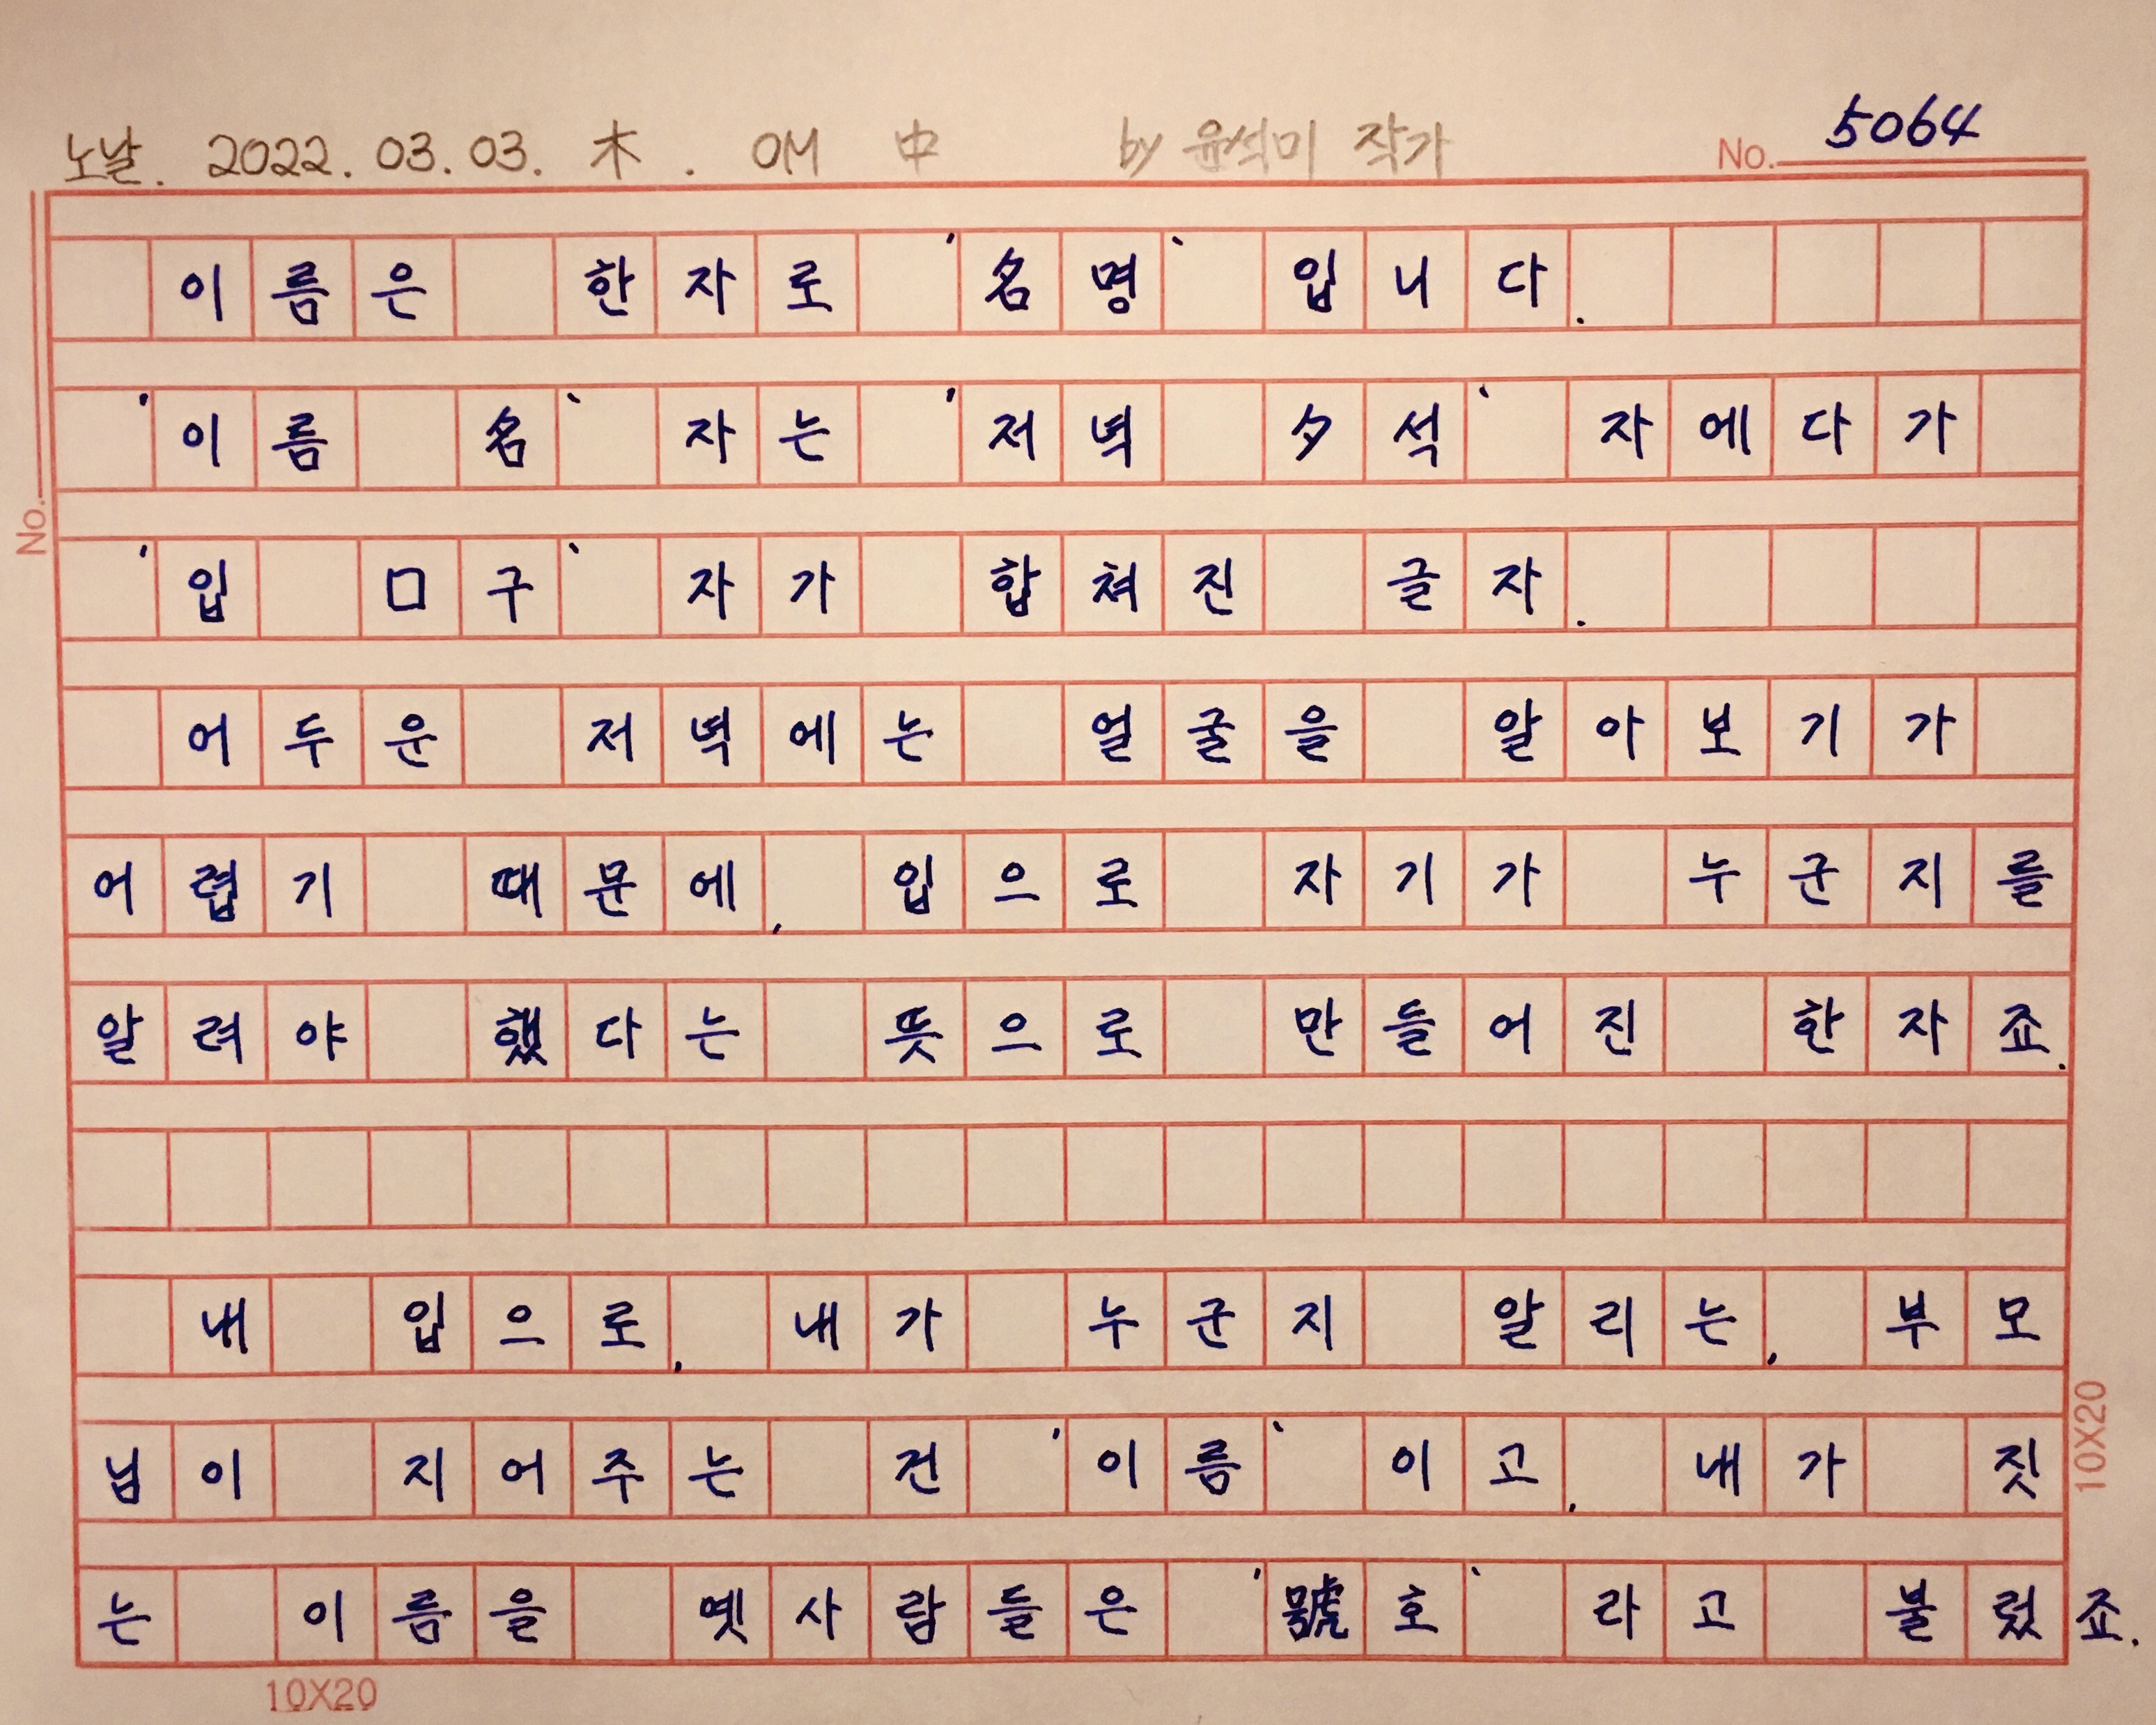 노날. 2022. 03. 03. 木. OM 中 by 윤석미 작가 No. 5064
이름은 한자로 '名명' 입니다.
'이름 名' 자는 '저녁 夕석' 자에다가
'입 口구' 자가 합쳐진 글자.
No.
어두운 저녁에는 얼굴을 알아보기가
어렵기 때문에, 입으로 자기가 누군지를
알려야 했다는 뜻으로 만들어진 한자죠.
내 입으로, 내가 누군지 알리는, 부모
님이 지어주는 건 '이름' 이고, 내가 짓
는 이름을 옛사람들은 '號호' 라고 불렀죠.
10X20
10X20